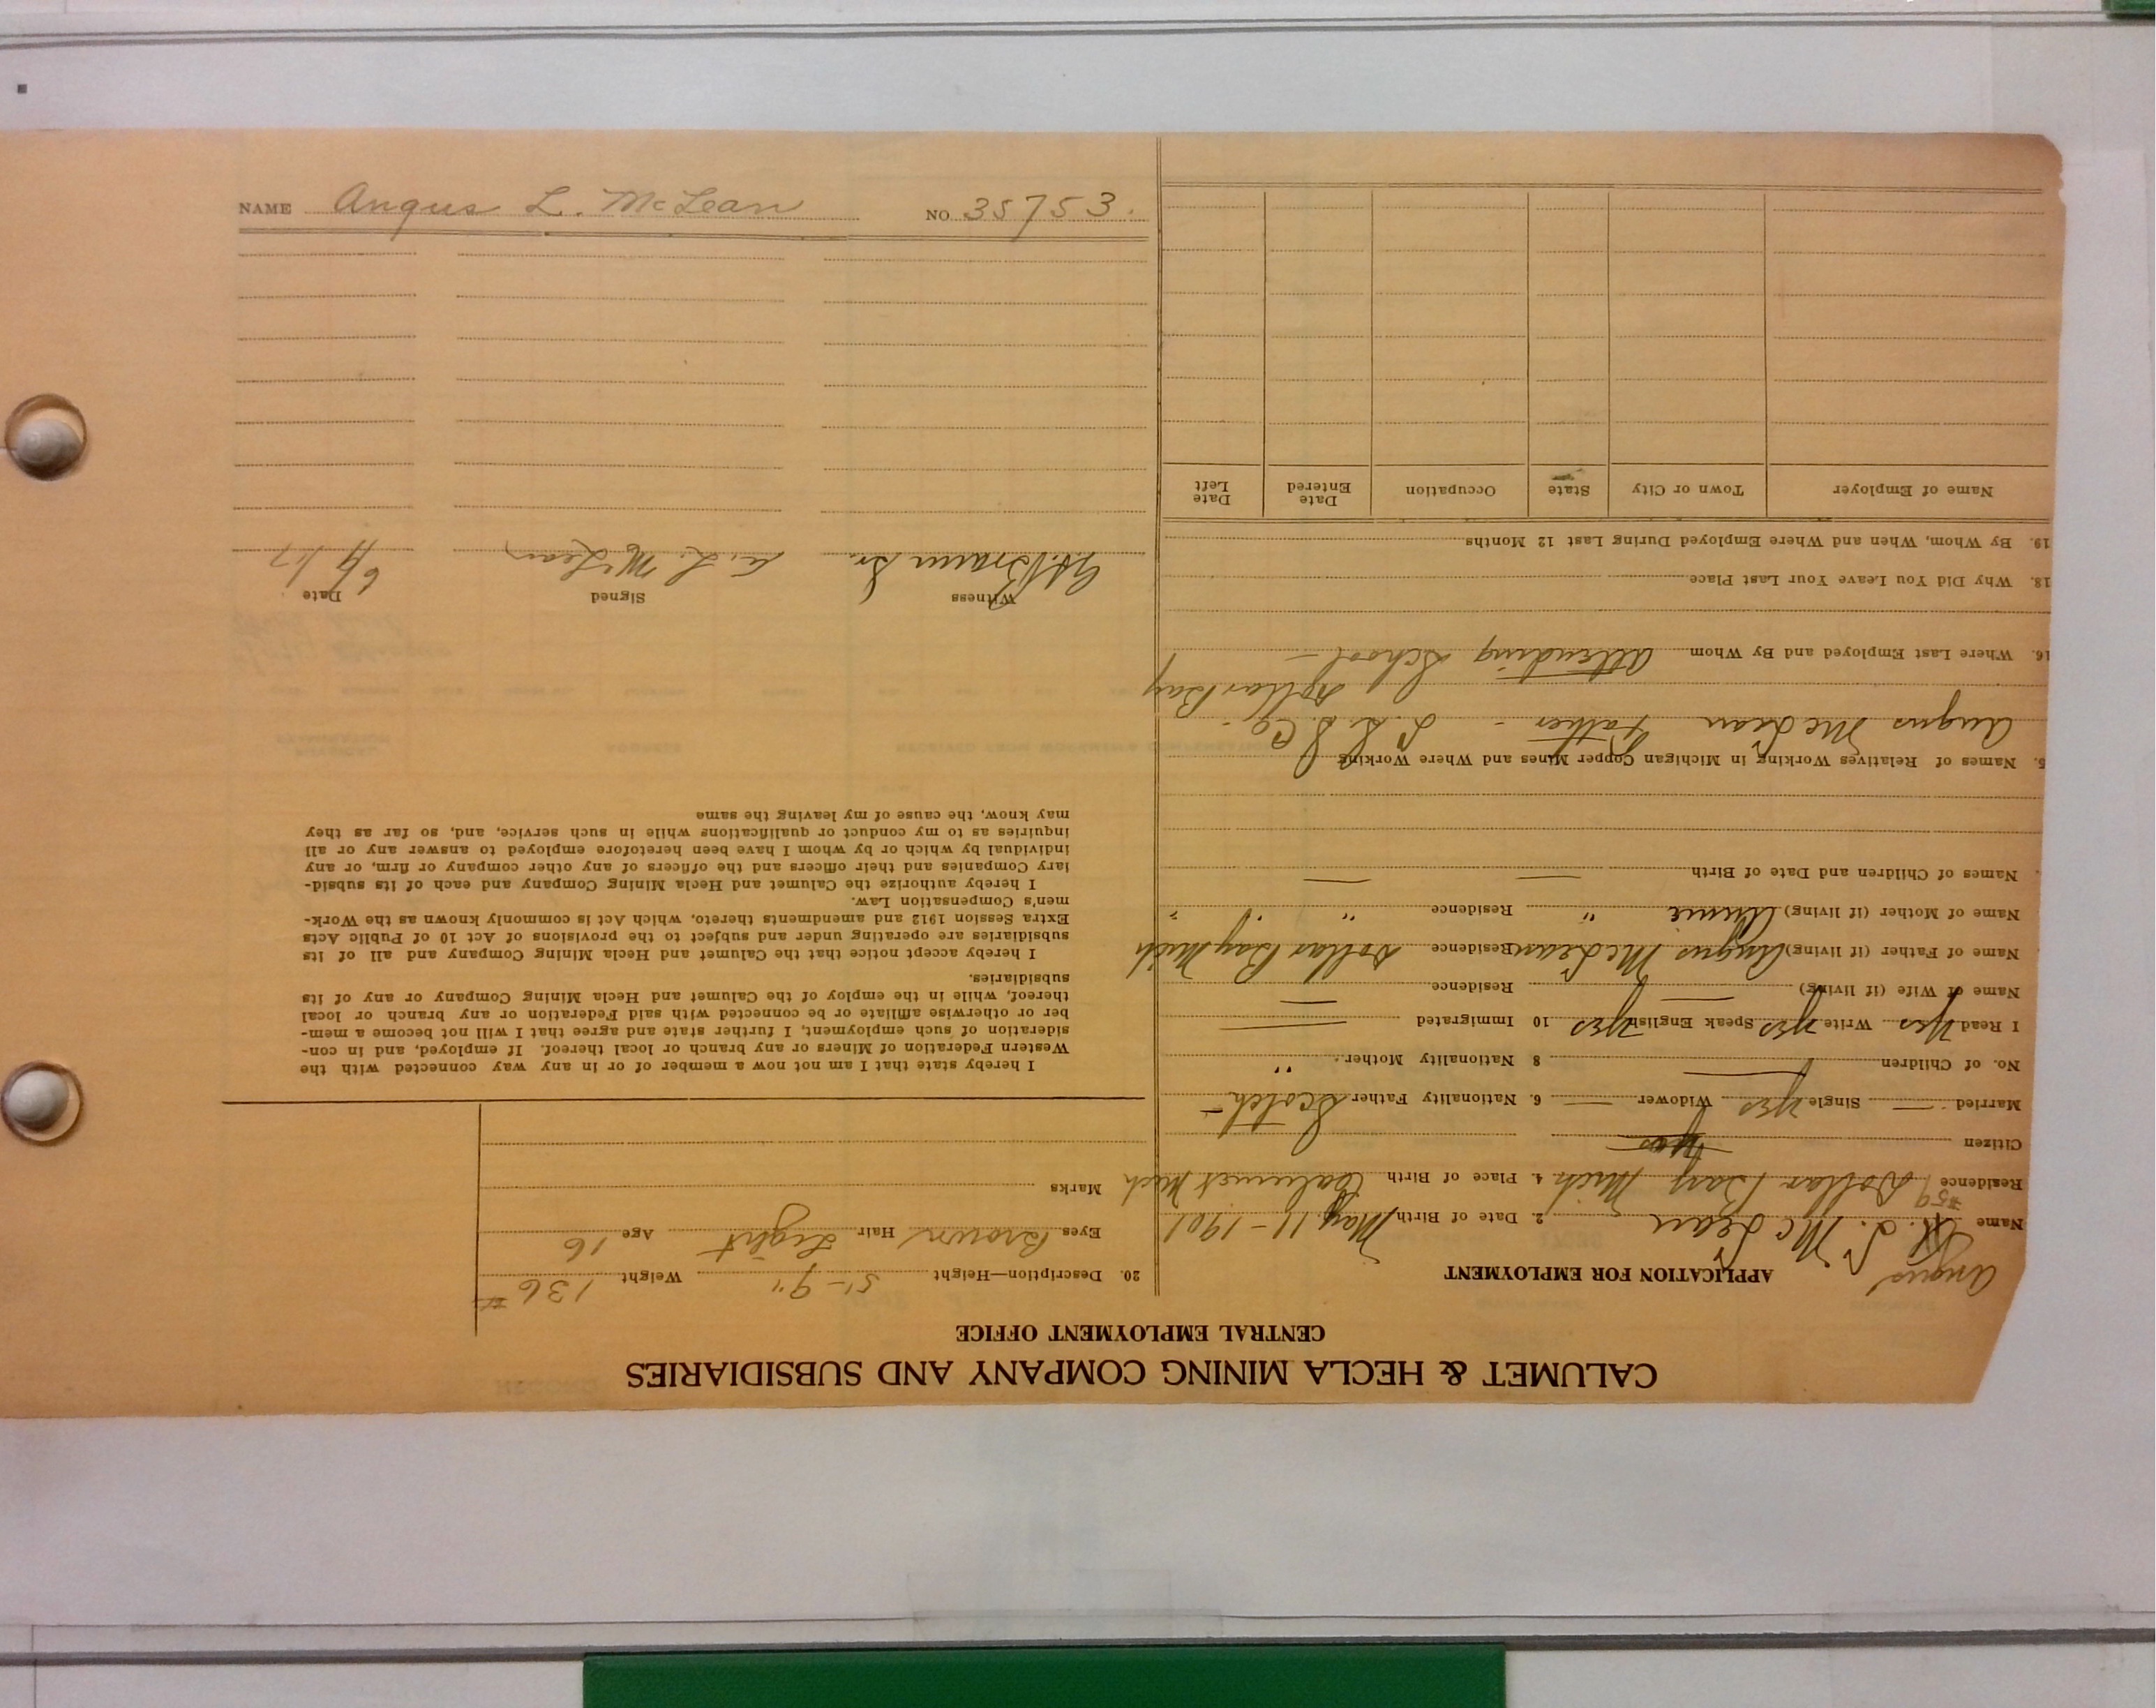 CALUMET & HECLA MINING COMPANY AND SUBSIDIARIES
CENTRAL EMPLOYMENT OFFICE
APPLICATION FOR EMPLOYMENT
Angus
Name A. L. McLean 2. Date of Birth May 11-1901
#59
Residence Dollar Bay Mich 4. Place of Birth Calumet Mich
Citizen yes
Married — Single yes Widower — 6. Nationality Father Scotch
No. of Children — 8 Nationality Mother "
I Read yes Write yes Speak English yes 10 Immigrated —
Name of Wife (if living) — Residence —
Name of Father (if living) Angus McLean Residence Dollar Bay Mich
Name of Mother (if living) Annie " Residence " " "
Names of Children and Date of Birth — —
5. Names of Relatives Working in Michigan Copper Mines and Where Working
Angus McLean Father - L. L. S. Co. -
Dollar Bay
16. Where Last Employed and By Whom Attending School —
18. Why Did You Leave Your Last Place
19. By Whom, When and Where Employed During Last 12 Months
Name of Employer Town or City State Occupation Date Entered Date Left
20. Description—Height 5'-9" Weight 136 #
Eyes Brown Hair Light Age 16
Marks
I hereby state that I am not now a member of or in any way connected with the
Western Federation of Miners or any branch or local thereof. If employed, and in con-
sideration of such employment, I further state and agree that I will not become a mem-
ber or otherwise affiliate or be connected with said Federation or any branch or local
thereof, while in the employ of the Calumet and Hecla Mining Company or any of its
subsidiaries.
I hereby accept notice that the Calumet and Hecla Mining Company and all of its
subsidiaries are operating under and subject to the provisions of Act 10 of Public Acts
Extra Session 1912 and amendments thereto, which Act is commonly known as the Work-
men's Compensation Law.
I hereby authorize the Calumet and Hecla Mining Company and each of its subsid-
iary Companies and their officers and the officers of any other company or firm, or any
individual by which or by whom I have been heretofore employed to answer any or all
inquiries as to my conduct or qualifications while in such service, and, so far as they
may know, the cause of my leaving the same
Witness Signed Date
Braun Sr. A. L. McLean
NAME Angus L. McLean NO. 35753.